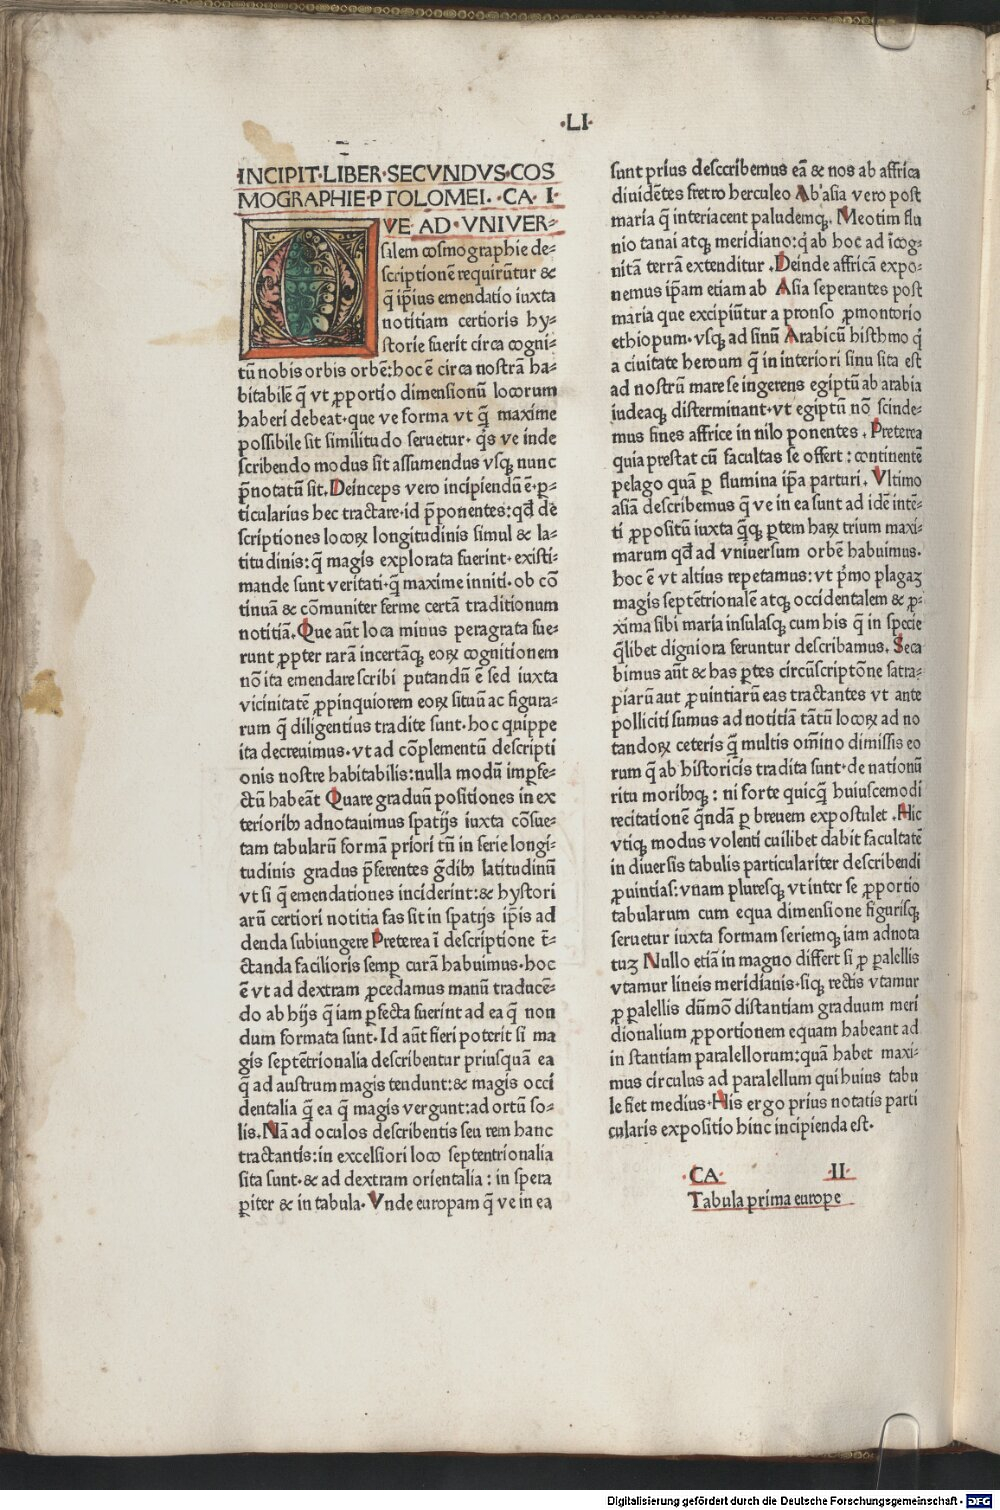 ·LI·
INCIPIT·LIBER·SECVNDVS·COS
MOGRAPHIE·PTOLOMEI.·CA·I·
QVE·AD·VNIVER⸗
salem cosmographie de⸗
scriptionē requirūtur &
q̄ ip̄ius emendatio iuxta
notitiam certioris hy⸗
storie fuerit circa cogni⸗
tū nobis orbis orbē: hoc ē circa nostrā ha⸗
bitabilē q̄ vt ꝓportio dimensionū locorum
haberi debeat·que ve forma vt q̄ꝫ maxime
possibile sit similitudo seruetur· q̄s ve inde
scribendo modus sit assumendus vsqꝫ nunc
p̄notatū sit. Deinceps vero incipiendū ē·ꝑ⸗
ticularius hec tractare·id p̄ponentes: qd̄ de
scriptiones locoꝝ longitudinis simul & la⸗
titudinis: q̄ magis explorata fuerint· existi⸗
mande sunt veritati·q̄ maxime inniti·ob cō
tinuā & cōmuniter ferme certā traditionum
notitiā. Que aūt loca minus peragrata fue⸗
runt ꝓpter rarā incertāqꝫ eoꝝ cognitionem
nō ita emendare scribi putandū ē sed iuxta
vicinitatē ꝓpinquiorem eoꝝ situū ac figura⸗
rum q̄ diligentius tradite sunt·hoc quippe
ita decreuimus·vt ad cōplementū descripti
onis nostre habitabilis: nulla modū imꝑfe⸗
ctū habeāt Quare graduū positiones in ex
teriorib⁹ adnotauimus spatijs iuxta cōsue⸗
tam tabularū formā priori tū in serie longi⸗
tudinis gradus p̄ferentes ḡdib⁹ latitudinū
vt si q̄ emendationes inciderint: & hystori
arū certiori notitia fas sit in spatijs ip̄is ad
denda subiungere Preterea ī descriptione t̄⸗
ctanda facilioris semꝑ curā habuimus·hoc
ē vt ad dextram ꝓcedamus manū traducē⸗
do ab hijs q̄ iam ꝑfecta fuerint ad ea q̄ non
dum formata sunt·Id aūt fieri poterit si ma
gis septētrionalia describentur priusquā ea
q̄ ad austrum magis tendunt: & magis occi
dentalia q̄ ea q̄ magis vergunt: ad ortū so⸗
lis. Nā ad oculos describentis seu rem hanc
tractantis: in excelsiori loco septentrionalia
sita sunt·& ad dextram orientalia : in spera
ꝑiter & in tabula· Vnde europam q̄ ve in ea
sunt prius desccribemus eā & nos ab affrica
diuidētes fretro herculeo Ab asia vero post
maria q̄ interiacent paludemqꝫ Meotim flu
nio tanai atqꝫ meridiano: q̄ ab hoc ad īcog⸗
nitā terrā extenditur . Deinde affricā expo⸗
nemus ip̄am etiam ab Asia seperantes post
maria que excipiūtur a pronso ꝓmontorio
ethiopum·vsqꝫ ad sinū Arabicū histhmo q̄
a ciuitate heroum q̄ in interiori sinu sita est
ad nostrū mare se ingerens egiptū ab arabia
iudeaqꝫ disterminant·vt egiptū nō scinde⸗
mus fines affrice in nilo ponentes . Preterea
quia prestat cū facultas se offert : continentē
pelago quā ꝑ flumina ip̄a parturi . Vltimo
asiā describemus q̄ ve in ea sunt ad idē intē⸗
ti ꝓpositū iuxta q̄qꝫ ꝑtem haꝝ trium maxi⸗
marum qd̄ ad vniuersum orbē habuimus.
hoc ē vt altius repetamus: vt p̄mo plagaꝫ
magis septētrionalē atqꝫ occidentalem & ꝓ⸗
xima sibi maria insulasqꝫ cum his q̄ in specie
q̄libet digniora feruntur describamus. Seca
bimus aūt & has ꝑtes circūscriptōne satra⸗
piarū aut ꝓuintiarū eas tractantes vt ante
polliciti sumus ad notitiā tātū locoꝝ ad no
tandoꝝ ceteris q̄ꝫ multis om̄ino dimissis eo
rum q̄ ab historicis tradita sunt·de nationū
ritu morib⁹qꝫ : ni forte quicq̄ꝫ huiuscemodi
recitationē q̄ndā ꝑ breuem expostulet . Hic
vtiqꝫ modus volenti cuilibet dabit facultatē
in diuersis tabulis particulariter describendi
ꝓuintias: vnam pluresqꝫ vt inter se ꝓportio
tabularum cum equa dimensione figurisqꝫ
seruetur iuxta formam seriemqꝫ iam adnota
tuꝫ Nullo etiā in magno differt si ꝓ ꝑalellis
vtamur lineis meridianis·siqꝫ rectis vtamur
ꝓ ꝑalellis dūmō distantiam graduum meri
dionalium ꝓportionem equam habeant ad
in stantiam paralellorum: quā habet maxi⸗
mus circulus ad paralellum qui huius tabu
le fiet medius·His ergo prius notatis parti
cularis expositio hinc incipienda est·
·CA· ·II·
Tabula prima europe
Digitalisierung gefördert durch die Deutsche Forschungsgemeinschaft - DFG